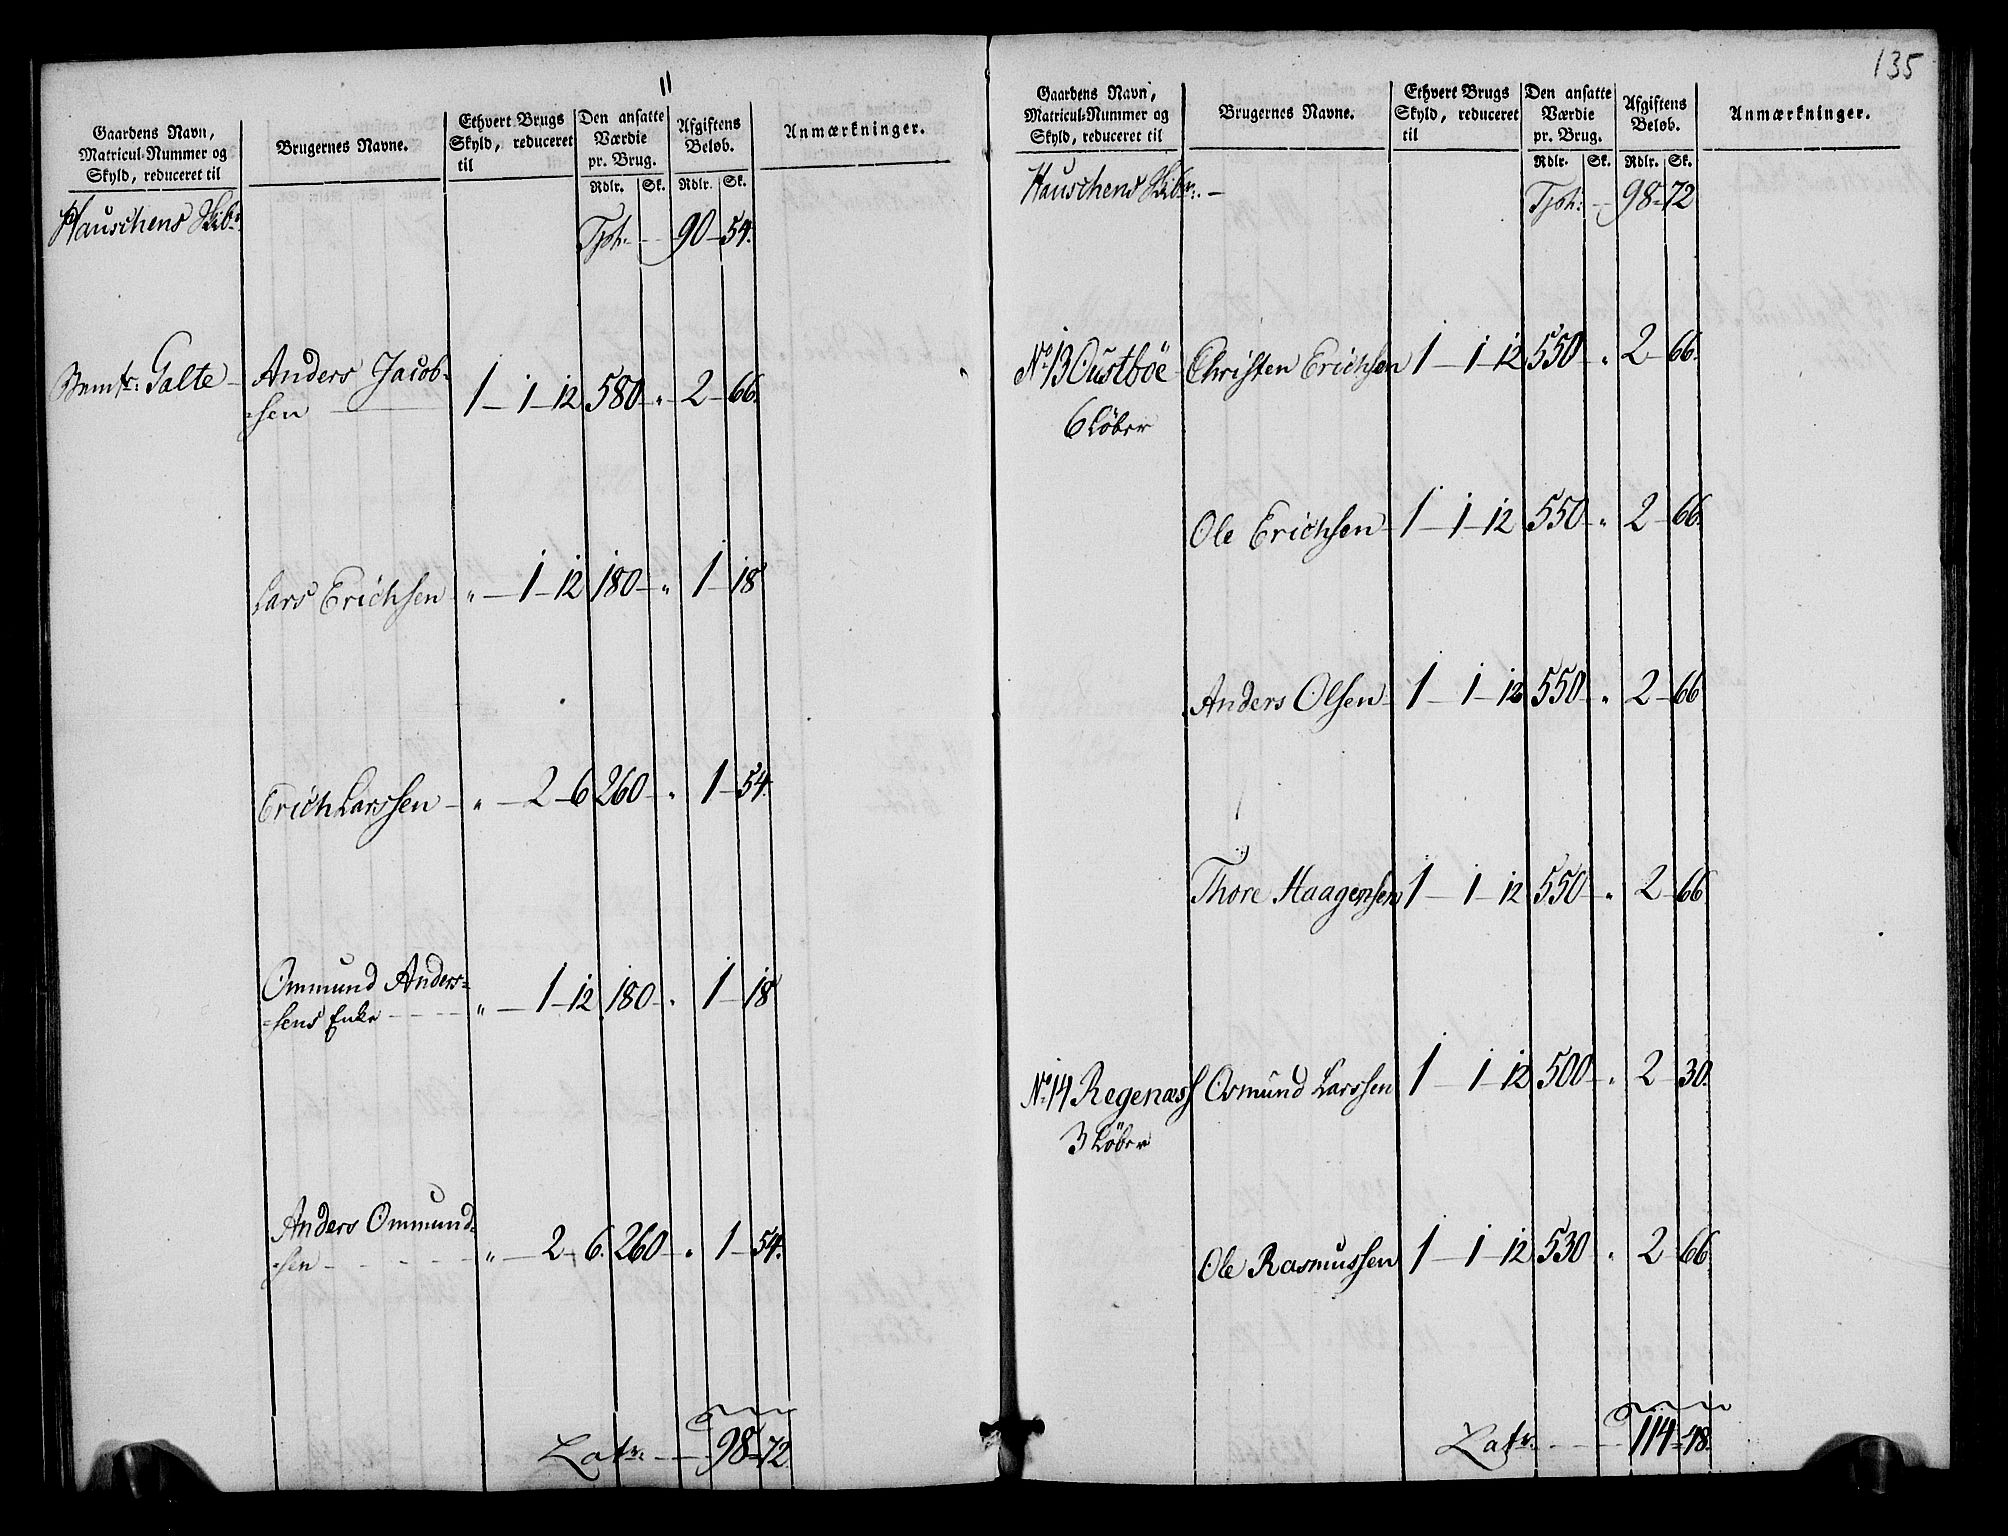 11
Gaardens Navn, Matricul-Nummer og Skyld, reduceret til | Brugernes Navne. | Ethvert Brugs Skyld, reduceret til | Den ansatte Værdie pr. Brug. | Afgiftens Beløb. | Anmærkninger.
Rdlr. | Sk. | Rdlr. | Sk.
Hauschens Skibr: Tpt: — 90 — 54.
Galte — Anders Jacob- 1 — 1 — 12 580 — „ — 2 — 66.
=sen
Lars Erichsen „ — 1 — 12 180 — „ 1 — 18
Erich Larssen — „ — 2 — 6 260 — „ 1 — 54.
Ommund Anders=
=sens Enke — „ — 1 — 12 180 — „ 1 — 18
Anders Ommund=
=sen — „ — 2 — 6. 260 — „ 1 — 54.
Latr: — 98 — 72.
135
Gaardens Navn, Matricul-Nummer og Skyld, reduceret til | Brugernes Navne. | Ethvert Brugs Skyld, reduceret til | Den ansatte Værdie pr. Brug. | Afgiftens Beløb. | Anmærkninger.
Rdlr. | Sk. | Rdlr. | Sk.
Hauschens Skibr: — Tpt: — 98 — 72
No 13 Oustböe Christen Erichsen 1 — 1 — 12 550 — „ 2 — 66.
6 Löber
Ole Erichsen 1 — 1 — 12 550 — „ 2 — 66.
Anders Olsen 1 — 1 — 12 550 — „ 2 — 66
Thore Haagensen 1 — 1 — 12 550 — „ 2 — 66
No 14 Regenæss Osmund Larssen 1 — 1 — 12 500 — „ 2 — 30.
3 Löber
Ole Rasmussen 1 — 1 — 12 530 „ 2 — 66.
Latr: — 114 — 48.